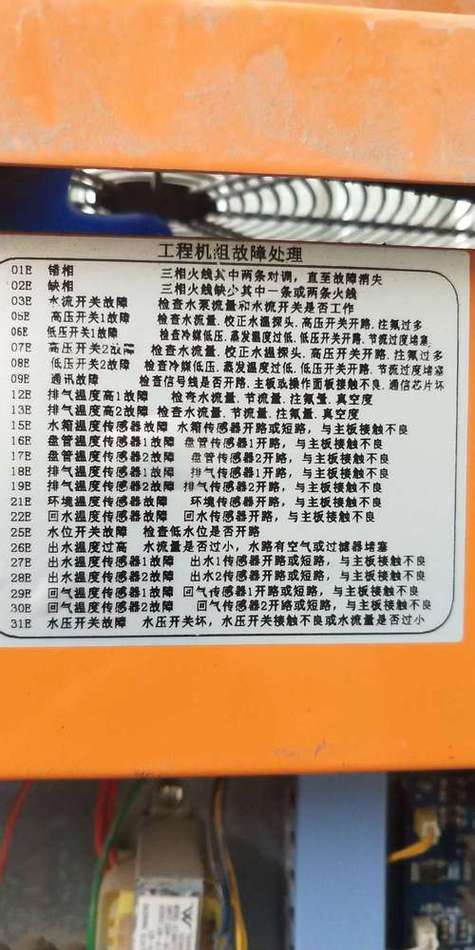 工程机组故障处理
01E 错相 三相火线其中两条对调，直至故障消失
02E 缺相 三相火线缺少其中一条或两条火线
03E 水流开关故障 检查水泵流量和水流开关是否工作
05E 高压开关1故障 检查水流量.校正水温探头.高压开关开路.注氟过多
06E 低压开关1故障 检查冷媒低压.蒸发温度过低.低压开关开路.节流过度堵塞
07E 高压开关2故障 检查水流量.校正水温探头.高压开关开路.注氟过多
08E 低压开关2故障 检查冷媒低压.蒸发温度过低.低压开关开路.节流过度堵塞
09E 通讯故障 检查信号线是否开路.主板或操作面板接触不良.通信芯片坏
12E 排气温度高1故障 检查水流量.节流量.注氟量.真空度
13E 排气温度高2故障 检查水流量.节流量.注氟量.真空度
15E 水箱温度传感器故障 水箱传感器开路或短路，与主板接触不良
16E 盘管温度传感器1故障 盘管传感器1开路，与主板接触不良
17E 盘管温度传感器2故障 盘管传感器2开路，与主板接触不良
18E 排气温度传感器1故障 排气传感器1开路，与主板接触不良
19E 排气温度传感器2故障 排气传感器2开路，与主板接触不良
21E 环境温度传感器故障 环境传感器开路，与主板接触不良
22E 回水温度传感器故障 回水传感器开路，与主板接触不良
25E 水位开关故障 检查低水位是否开路
26E 出水温度过高 水流量是否过小，水路有空气或过滤器堵塞
27E 出水温度传感器1故障 出水1传感器开路或短路，与主板接触不良
28E 出水温度传感器2故障 出水2传感器开路或短路，与主板接触不良
29E 回气温度传感器1故障 回气传感器1开路或短路，与主板接触不良
30E 回气温度传感器2故障 回气传感器2开路或短路，与主板接触不良
31E 水压开关故障 水压开关坏，水压开关接触不良或水流量是否过小